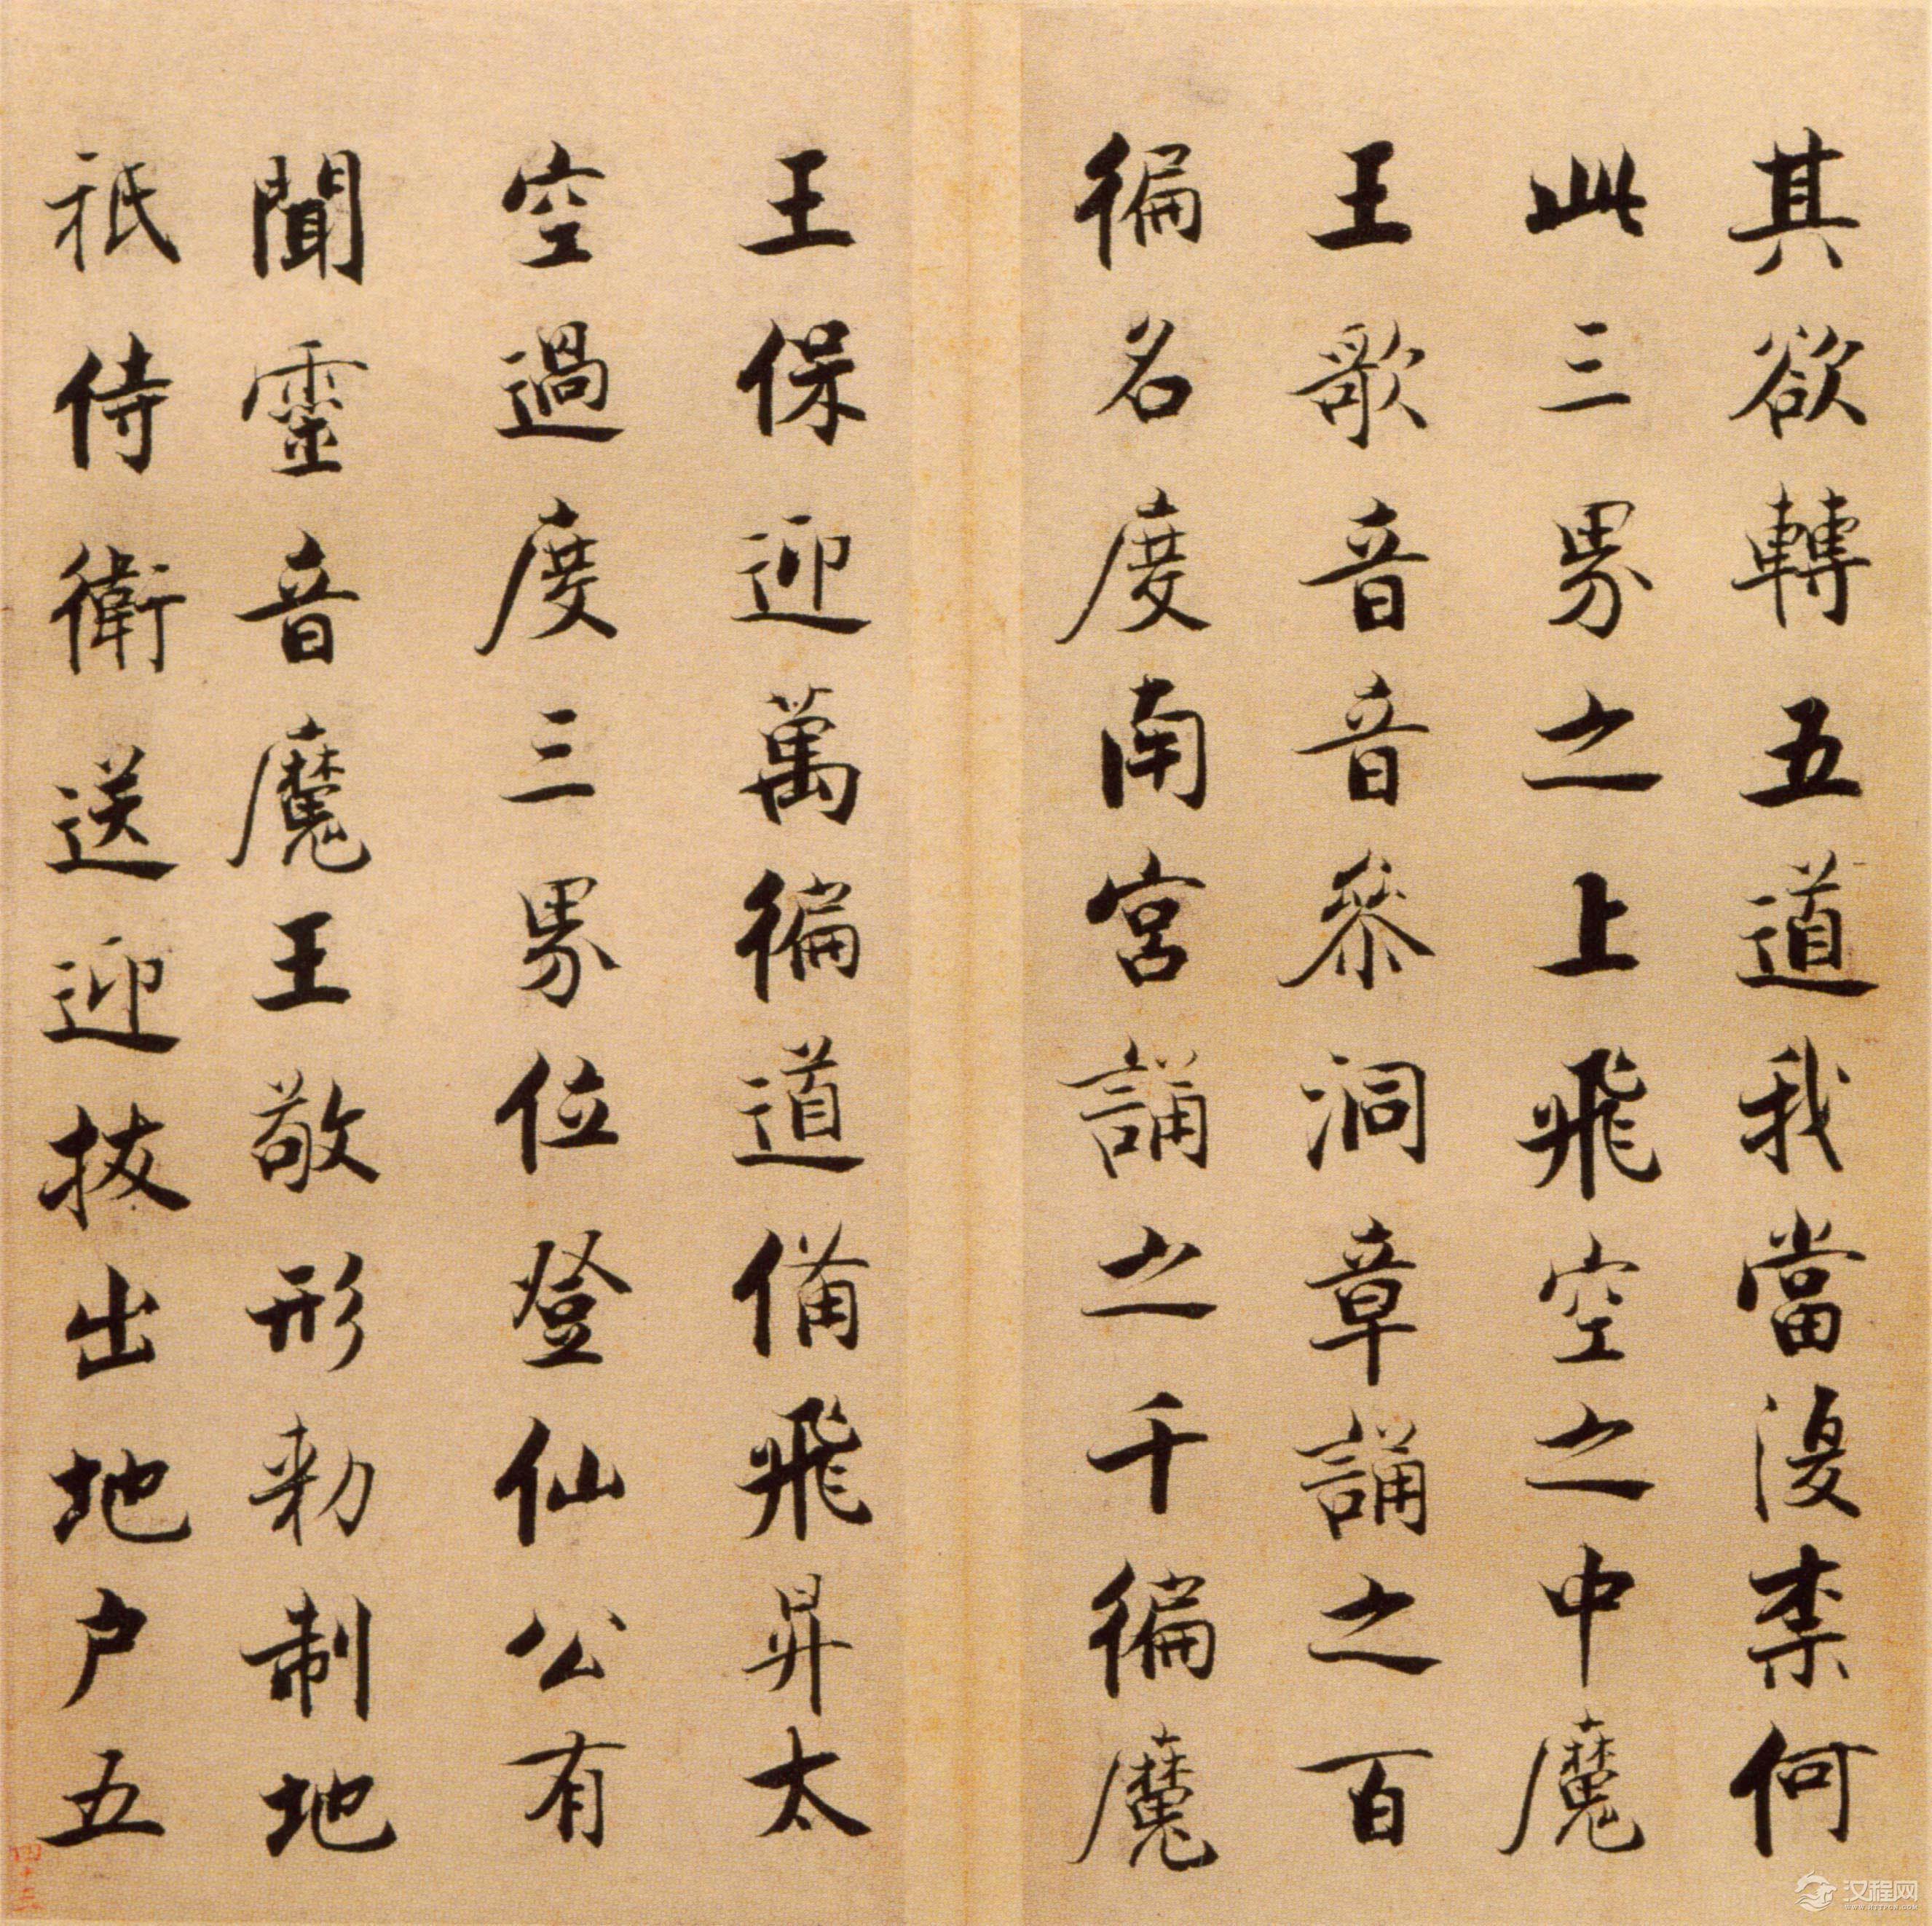 其欲轉五道我當復柰何
此三界之上飛空之中魔
王歌音音參洞章誦之百
徧名度南宮誦之千徧魔
王保迎萬徧道備飛昇太
空過度三界位登仙公有
聞靈音魔王敬形勑制地
祇侍衛送迎拔出地户五
汉程网
WWW.HTTPCN.COM